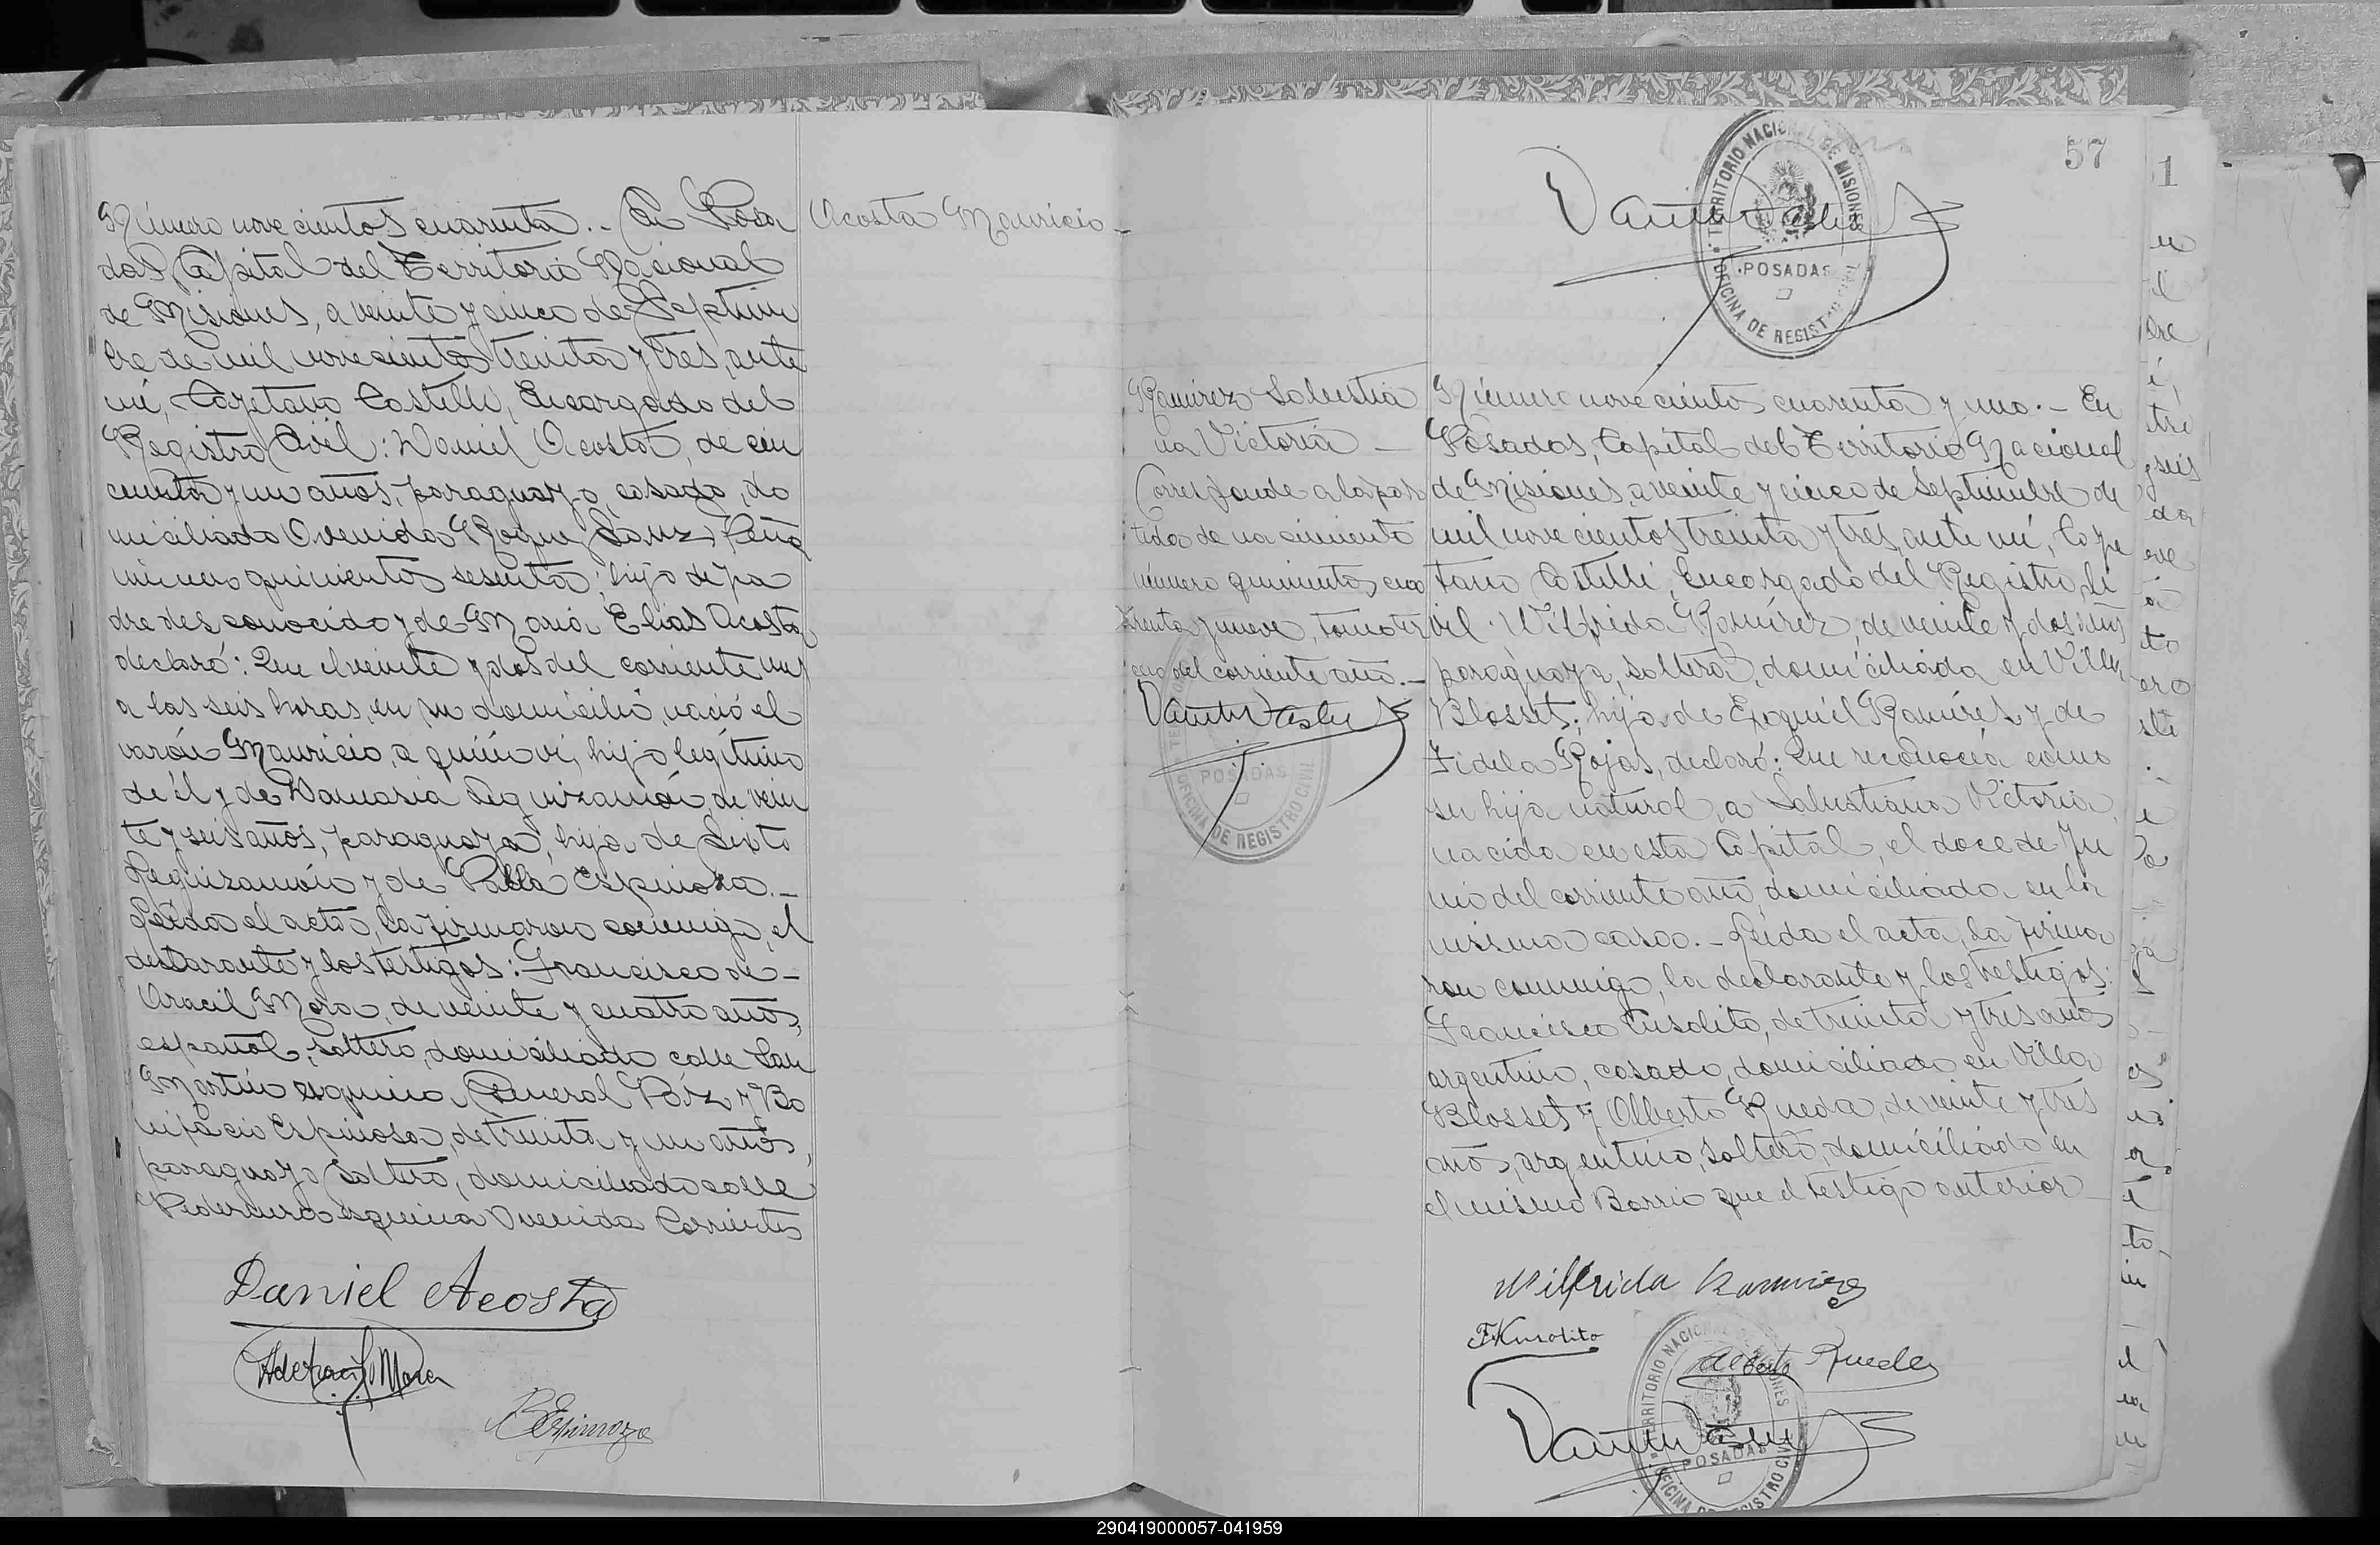 Número novecientos cuarenta.- En Posa
das, Capital del Territorio Nacional
de Misiones, a veinte y cinco de Septiem
bre de mil novecientos treinta y tres, ante
mí, Cayetano Castelli, Encargado del
Registro Civil: Daniel Acosta, de cin
cuenta y un años, paraguayo, casado, do
miciliado Avenida Roque Saenz Peña
número quinientos sesenta; hijo de pa
dre desconocido y de María Elías Acosta
declaró: Que el veinte y dos del corriente mes
a las seis horas, en su domicilio, nació el
varón Mauricio, a quién ví, hijo legítimo
de él y de Damasia Leguizamón, de vein
te y seis años, paraguaya, hija de Sixto
Leguizamón y de Pabla Espinoza.-
Leída el acta, la firmaron conmigo, el
declarante y los testigos: Francisco de-
Aracil Mora, de veinte y cuatro años,
español, soltero, domiciliado calle San
Martín esquina General Páz y Bo
nifacio Espinosa, de treinta y un años,
paraguayo, soltero, domiciliado calle
Pedernera esquina Avenida Corrientes
Acosta Mauricio-
Daniel Acosta
B Espinoza
57
TERRITORIO NACIONAL DE MISIONES
POSADAS
OFICINA DE REGISTRO CIVIL
Ramirez Salustia
na Victoria-
Corresponde a la par
tida de nacimiento
número quinientos cua
renta y nueve, tomo ter
cero del corriente año.-
POSADAS
OFICINA DE REGISTRO CIVIL
Número novecientos cuarenta y uno.- En
Posadas, Capital del Territorio Nacional
de Misiones, a veinte y cinco de Septiembre de
mil novecientos treinta y tres, ante mí, Caye
tano Castelli, Encargado del Registro Ci
vil: Wilfrida Ramírez, de veinte y dos años
paraguaya, soltera, domiciliada en Villa
Blosset; hija de Exequiel Ramírez y de
Fidela Rojas, declaró: Que reconocía como
su hija natural, a Salustiana Victoria,
nacida en esta Capital, el doce de Ju
nio del corriente año, domiciliada en la
misma casa.- Leída el acta, la firma
ron conmigo, la declarante y los testigos:
Francisco Cusolito, de treinta y tres años
argentino, casado, domiciliado en Villa
Blosset y Alberto Rueda, de veinte y tres
años, argentino, soltero, domiciliado en
el mismo Barrio que el testigo anterior
Wilfrida Ramirez
Alberto Rueda
TERRITORIO NACIONAL DE MISIONES
POSADAS
OFICINA DE REGISTRO CIVIL
290419000057-041959